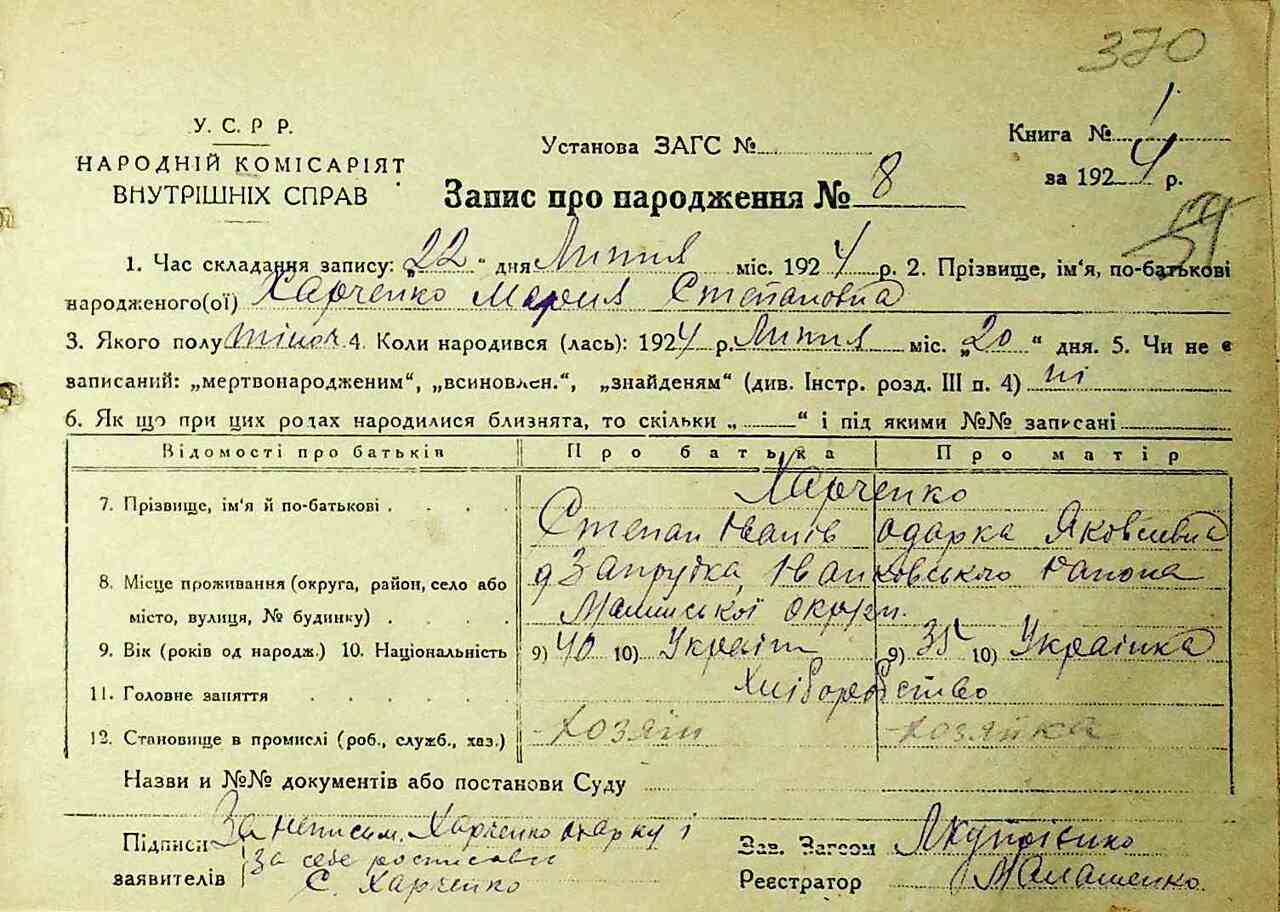 370
У. С. Р Р.
НАРОДНІЙ КОМІСАРІЯТ
ВНУТРІШНІХ СПРАВ
Установа ЗАГС №
Книга № 1
за 1924 р.
Запис про народження № 8
54
1. Час складання запису: „22“ дня Липня міс. 1924 р. 2. Прізвище, ім'я, по-батькові
народженого(ої) Харченко Мария Степановна
3. Якого полу жіноч. 4. Коли народився (лась): 1924 р. Липня міс. „20“ дня. 5. Чи не є
записаний: „мертвонародженим“, „всиновлен.“, „знайденям“ (див. Інстр. розд. III п. 4) ні
6. Як що при цих родах народилися близнята, то скільки „ “ і під якими №№ записані
Відомості про батьків Про батька Про матір
7. Прізвище, ім'я й по-батькові Харченко
Степан Іванів одарка Яковлевна
8. Місце проживання (округа, район, село або д Запрудка, Іванковського району
місто, вулиця, № будинку) округи.
9. Вік (років од народж.) 10. Національність 9) 40 10) Українец 9) 35 10) Українка
11. Головне заняття Хліборобство
12. Становище в промислі (роб., служб., хаз.) хозяїн хозяйка
Назви и №№ документів або постанови Суду
Підписи За неписьм. Харченко одарку і
за себе росписався
заявителів С. Харченко
Зав. Загсом
Реєстратор Малашенко